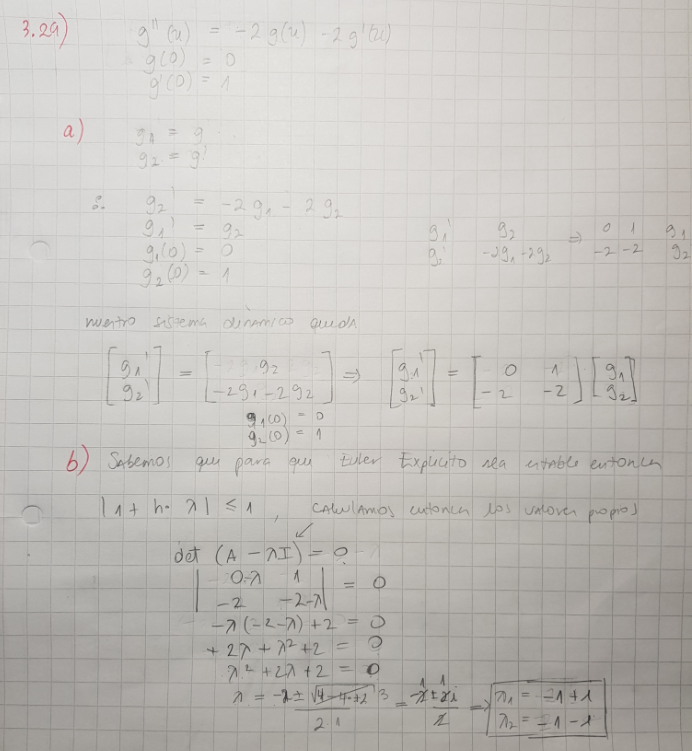 3.29)
g''(u) = -2 g(u) - 2 g'(u)
g(0) = 0
g'(0) = 1
a)
g1 = g
g2 = g'
∴ g2' = -2 g1 - 2 g2
g1' = g2
g1(0) = 0
g2(0) = 1
g1' g2 ⇒ 0 1 g1
g2' -2g1-2g2 -2 -2 g2
nuestro sistema dinamico queda
[g1'] = [g2] ⇒ [g1'] = [0 1] [g1]
[g2'] [-2g1-2g2] [g2'] [-2 -2] [g2]
g1(0) = 0
g2(0) = 1
b) Sabemos que para que Euler Explicito sea estable entonces
|1 + h·λ| ≤ 1, calculamos entonces los valores propios
det (A - λI) = 0
|0-λ 1| = 0
|-2 -2-λ|
-λ(-2-λ)+2 = 0
+2λ+λ²+2 = 0
λ² + 2λ + 2 = 0
λ1 = -1+1
λ2 = -1-1